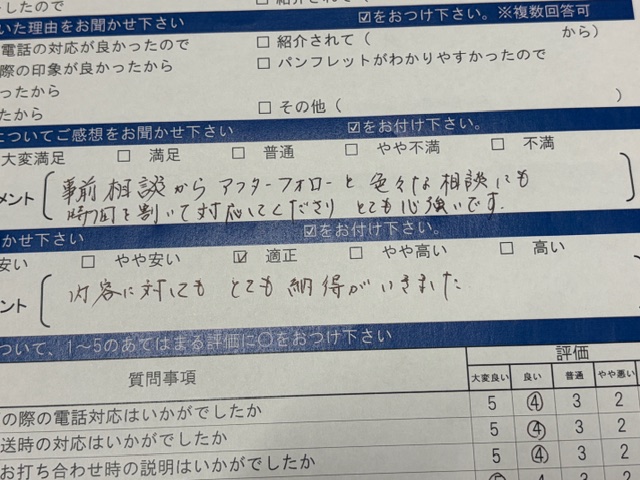 したので □ 紹介され
いた理由をお聞かせ下さい ☑をおつけ下さい。※複数回答可
電話の対応が良かったので □ 紹介されて ( から)
際の印象が良かったから □ パンフレットがわかりやすかったので
ったから
たから □ その他 ( )
についてご感想をお聞かせ下さい ☑をお付け下さい。
大変満足 □ 満足 □ 普通 □ やや不満 □ 不満
メント 事前相談からアフターフォローと色々な相談にも
時間を割いて対応してくださりとても心強いです。
かせ下さい ☑をお付け下さい。
安い □ やや安い ☑ 適正 □ やや高い □ 高い
ント 内容に対してもとても納得がいきました
ついて、1~5のあてはまる評価に○をおつけ下さい
質問事項 評価
大変良い 良い 普通 やや悪い
の際の電話対応はいかがでしたか 5 ④ 3 2
送時の対応はいかがでしたか 5 ④ 3 2
お打ち合わせ時の説明はいかがでしたか 5 ④ 3 2
⑤ 4 3 2